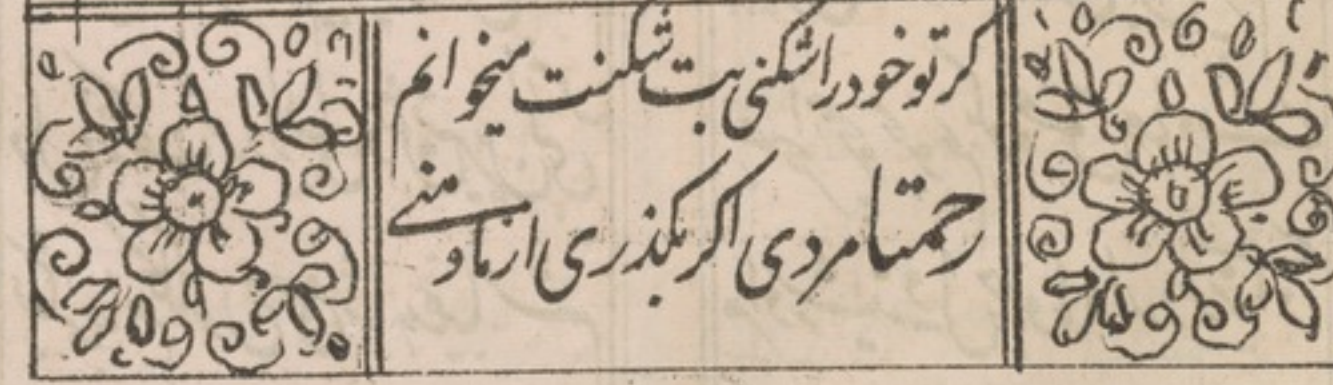 گر تو خود را شکنی بت شکنت میخوانم
رحمتا مردی اگر بگذری از ما و منے